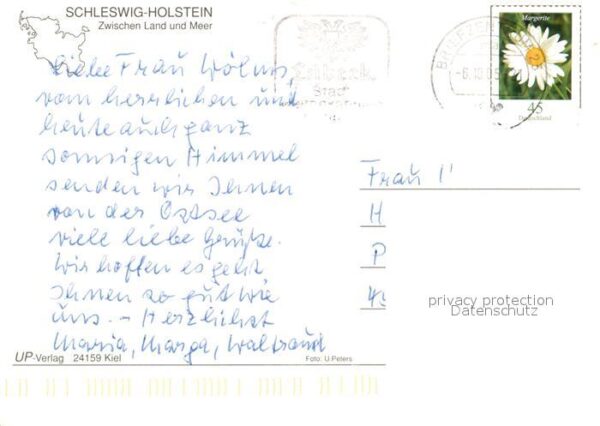 SCHLESWIG-HOLSTEIN
Zwischen Land und Meer
Liebe Frau
vom herrlichen und
heute auch ganz
sonnigen Himmel
senden wir Ihnen
von der Ostsee
viele liebe Grüße.
Wir hoffen es geht
Ihnen so gut wie
uns. – Herzlichst
Maria, Marga, Waltraud
UP-Verlag 24159 Kiel
Foto: U.Peters
Lübeck
Stadt
Margerite
45
Deutschland
Frau
H
P
privacy protection
Datenschutz